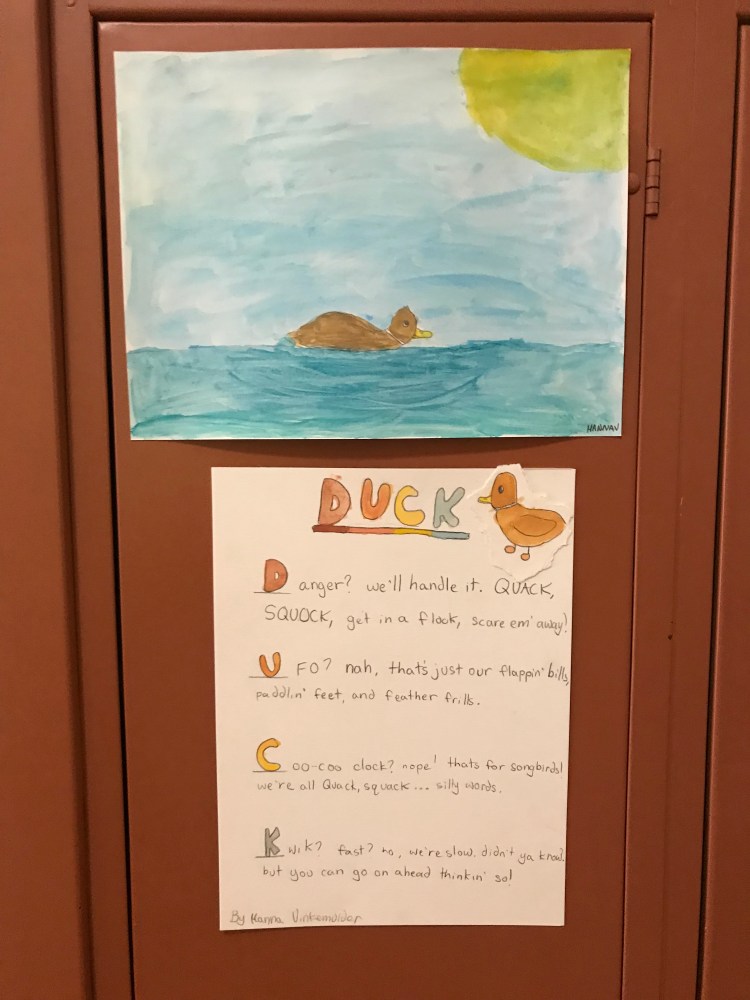 HANNAV
DUCK
Danger? we'll handle it. QUACK,
SQUOCK, get in a flock, scare em' away!
UFO? nah, that's just our flappin' bills,
paddlin' feet, and feather frills.
Coo-coo clock? nope! thats for songbirds!
we're all Quack, squack... silly words.
Kwik? fast? no, we're slow. didn't ya know?
but you can go on ahead thinkin' so!
By Hanna